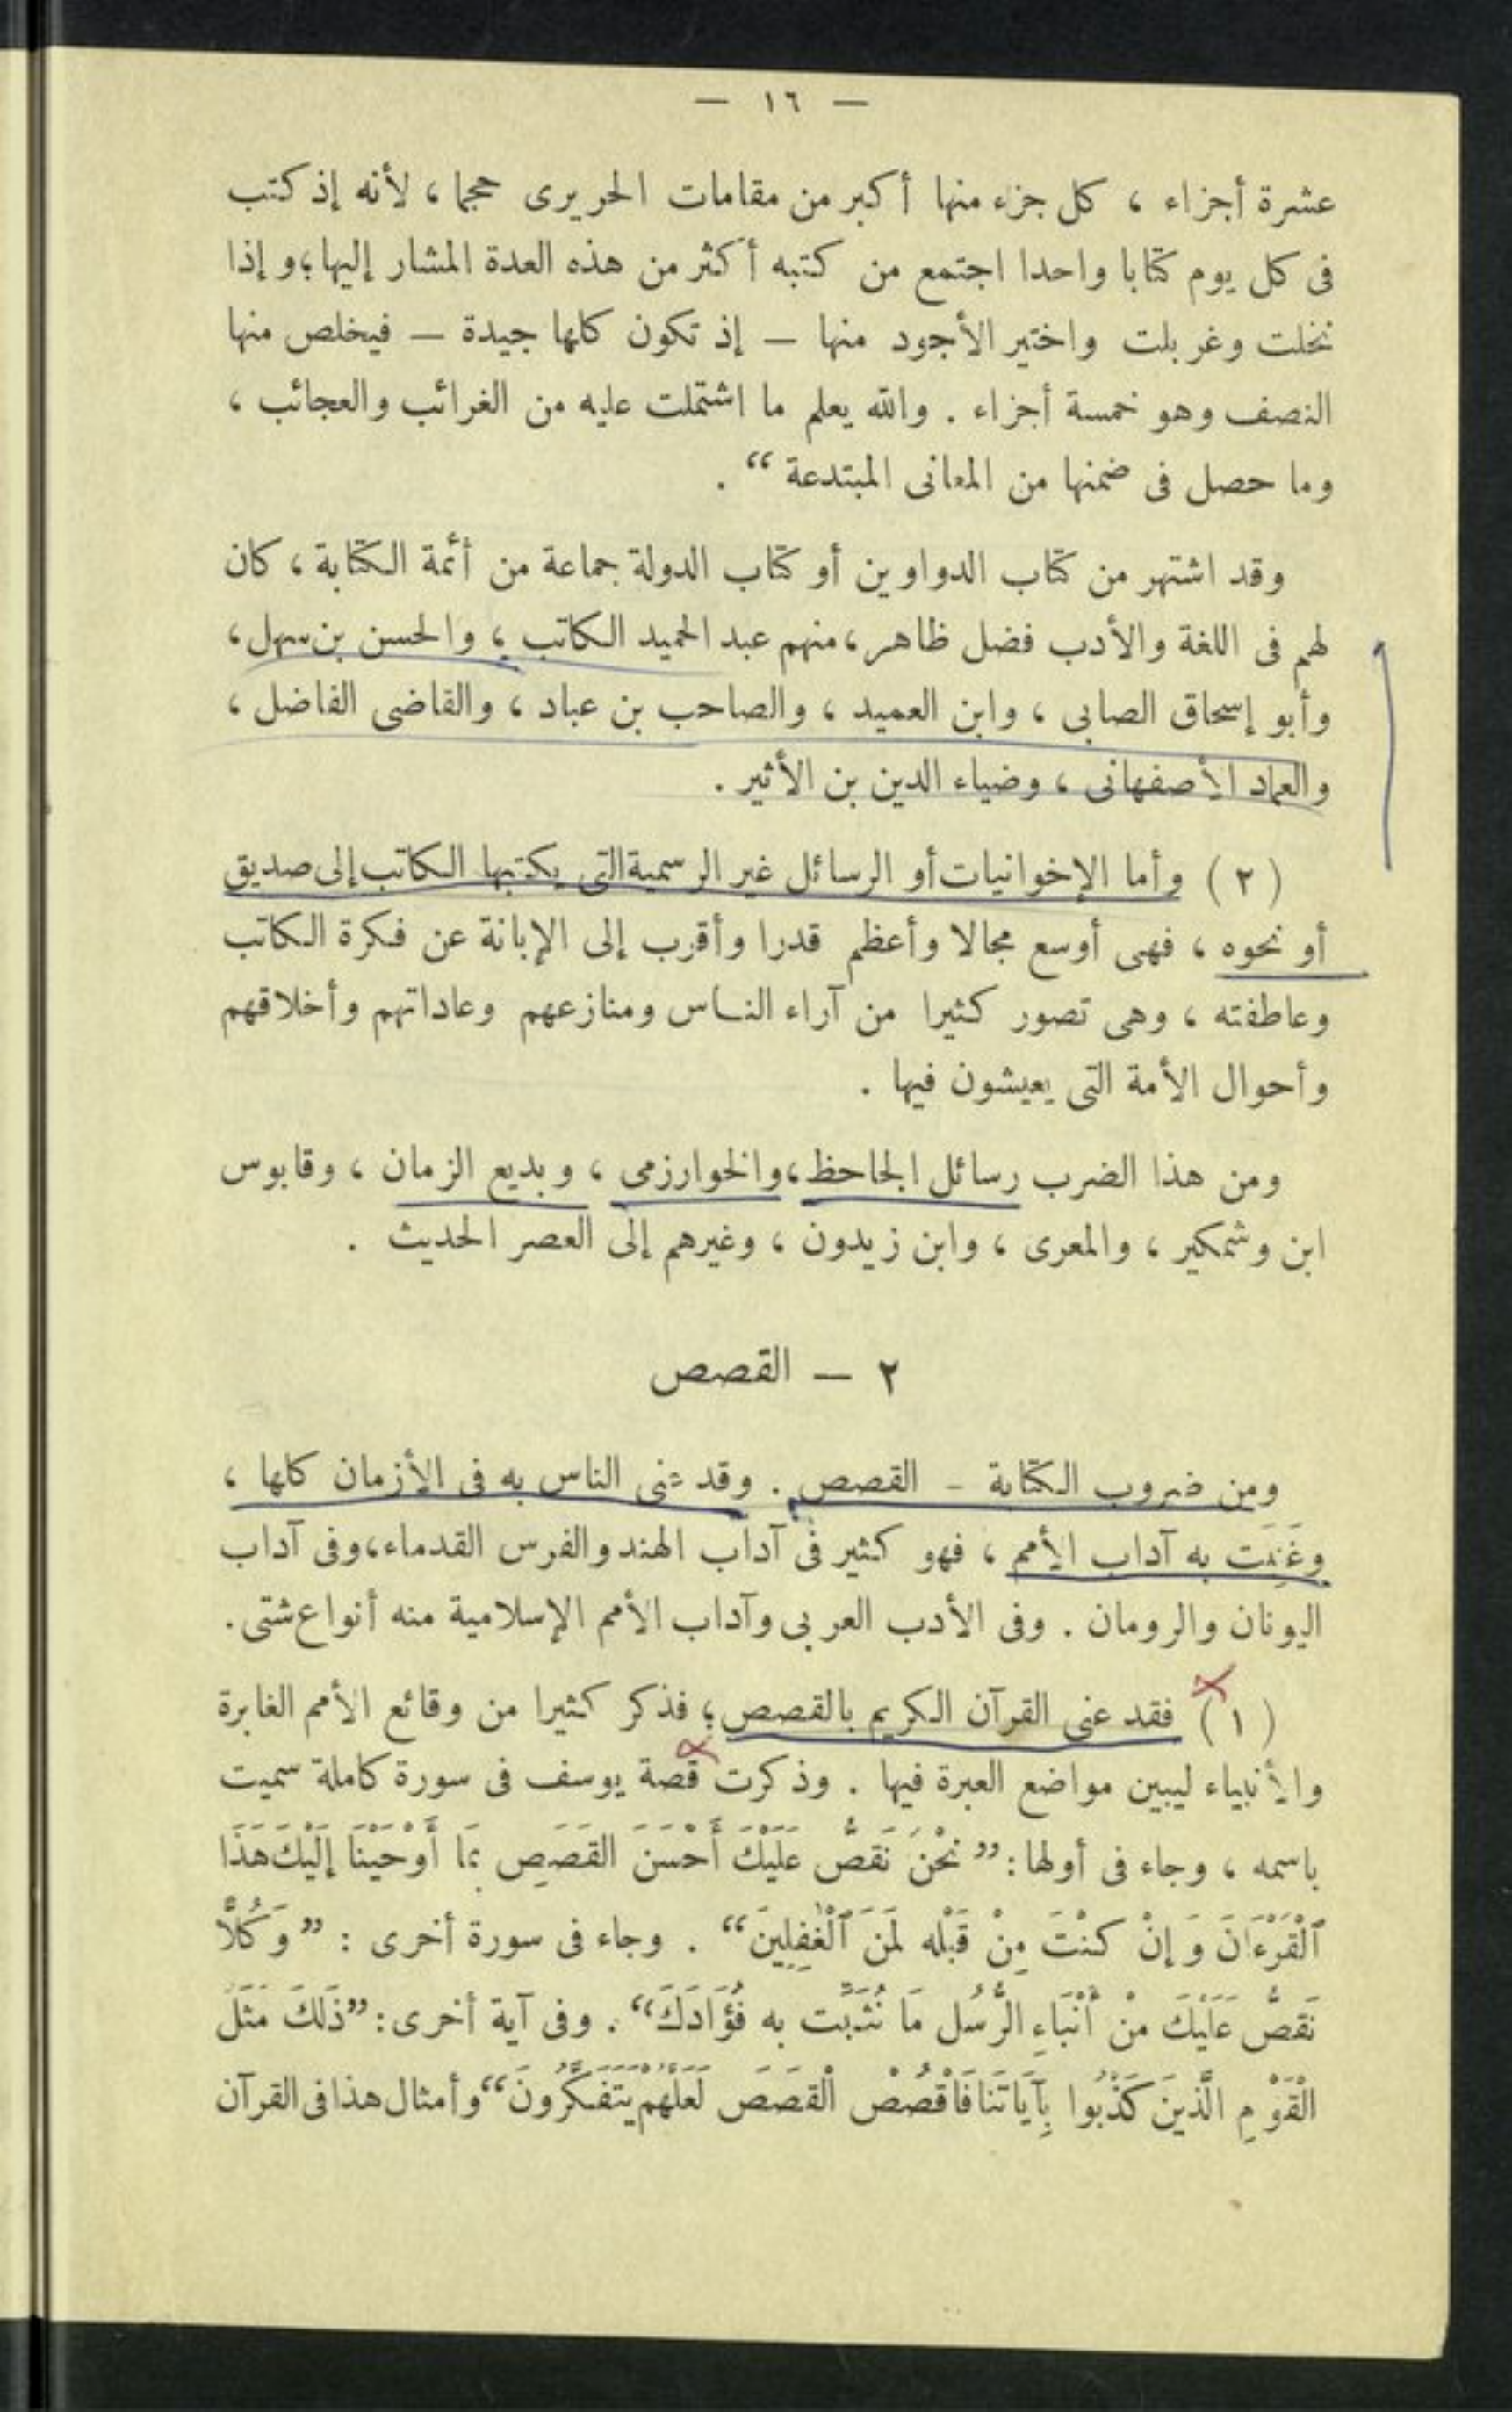 — ١٦ —
عشرة أجزاء ، كل جزء منها أكبر من مقامات الحريرى حجما ، لأنه إذ كتب
فى كل يوم كتابا واحدا اجتمع من كتبه أكثر من هذه العدة المشار إليها ؛ و إذا
نخلت وغربلت واختير الأجود منها — إذ تكون كلها جيدة — فيخلص منها
النصف وهو خمسة أجزاء . والله يعلم ما اشتملت عليه من الغرائب والعجائب ،
وما حصل فى ضمنها من المعانى المبتدعة “ .
وقد اشتهر من كتاب الدواوين أو كتاب الدولة جماعة من أئمة الكتابة ، كان
لهم فى اللغة والأدب فضل ظاهر ، منهم عبد الحميد الكاتب ، والحسن بن سهل ،
وأبو إسحاق الصابى ، وابن العميد ، والصاحب بن عباد ، والقاضى الفاضل ،
والعماد الأصفهانى ، وضياء الدين بن الأثير .
( ٢ ) وأما الإخوانيات أو الرسائل غير الرسمية التى يكتبها الكاتب إلى صديق
أو نحوه ، فهى أوسع مجالا وأعظم قدرا وأقرب إلى الإبانة عن فكرة الكاتب
وعاطفته ، وهى تصور كثيرا من آراء الناس ومنازعهم وعاداتهم وأخلاقهم
وأحوال الأمة التى يعيشون فيها .
ومن هذا الضرب رسائل الجاحظ ، والخوارزمى ، وبديع الزمان ، وقابوس
ابن وشمكير ، والمعرى ، وابن زيدون ، وغيرهم إلى العصر الحديث .
٢ — القصص
ومن ضروب الكتابة - القصص . وقد عنى الناس به فى الأزمان كلها ،
وغَنِيَت به آداب الأمم ، فهو كثير فى آداب الهند والفرس القدماء ، وفى آداب
اليونان والرومان . وفى الأدب العربى وآداب الأمم الإسلامية منه أنواع شتى .
( ١ ) فقد عنى القرآن الكريم بالقصص ؛ فذكر كثيرا من وقائع الأمم الغابرة
والأنبياء ليبين مواضع العبرة فيها . وذكرت قصة يوسف فى سورة كاملة سميت
باسمه ، وجاء فى أولها : ” نَحْنُ نَقُصُّ عَلَيْكَ أَحْسَنَ القَصَصِ بِمَا أَوْحَيْنَا إِلَيْكَ هَذَا
ٱلْقُرْءَانَ وَ إِنْ كنْتَ مِنْ قَبْلِه لَمَنَ ٱلْغَٰفِلِينَ “ . وجاء فى سورة أخرى : ” وَكُلًّا
نَقُصُّ عَلَيْكَ مِنْ أَنْبَاءِ الرُّسُل مَا نُثَبِّت به فُؤَادَكَ “ . وفى آية أخرى : ” ذَلكَ مَثَلُ
الْقَوْمِ الَّذينَ كَذَّبُوا بِآيَاتنَا فَاقْصُصْ الْقَصَصَ لَعَلَّهُمْ يَتَفَكَّرُونَ “ وأمثال هذا فى القرآن